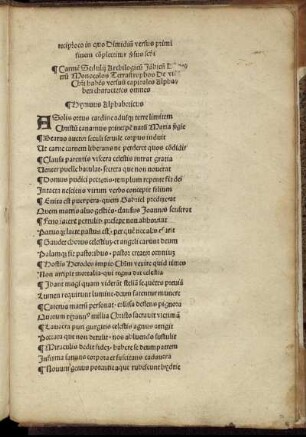 reciproco in quo Dimidiũ versus primi
finem cõplectitur
¶ Carmẽ Sedulij
Monocolos Terrastrophos De
Chri habẽs versuũ capitales Alpha
beti characteres omnes
¶ Hymnus Alphabeticus
A Solis ortus cardine ad usq; terre limitem
Christũ canamus principẽ natũ Maria
¶ Beatus auctor seculi seruile corpus induit
Ut carne carnem liberans ne perderet quos cõdidit
¶ Clausa parentis viscera celestis intrat gratia
Uenter puelle baiulat secreta que non nouerat
¶ Domus pudici pectoris templum repente fit dei
Intacta nesciens virum verbo concepit filium
¶ Enixa est puerpera quem Gabriel predixerat
Quem matris aluo gestiens clausus Joannes senserat
¶ Feno iacere pertulit presepe non abhorruit
Paruoq; lacte pastus est per quẽ nec ales esurit
¶ Gaudet chorus celestiũ et angeli canunt deum
Palamq; fit pastoribus pastor creator omniũ
¶ Hostis Herodes impie Christũ venire quid times
Non arripit mortalia qui regna dat celestia
¶ Ibant magi quam viderãt stellã sequẽtes preuiã
Lumen requirunt lumine deum fatentur munere
¶ Caterua matrũ personat collisa deflens pignora
Quorum tyrannus milia Christo sacrauit victimã
¶ Lauacra puri gurgitis celestis agnus attigit
Peccata que non detulit nos abluendo sustulit
¶ Miraculis dedit fidẽ habere se deum patrem
Infirma sanans corpora et suscitans cadauera
¶ Nouum genus potentie aque rubescunt hydrie